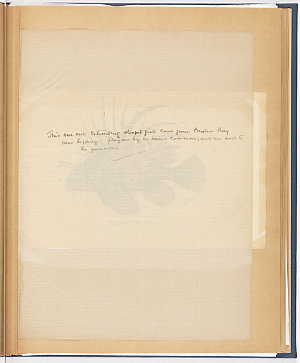 This rare and interesting shaped fish came from Broken Bay
near Sydney. They are by no means common, and are said to
be poisonous